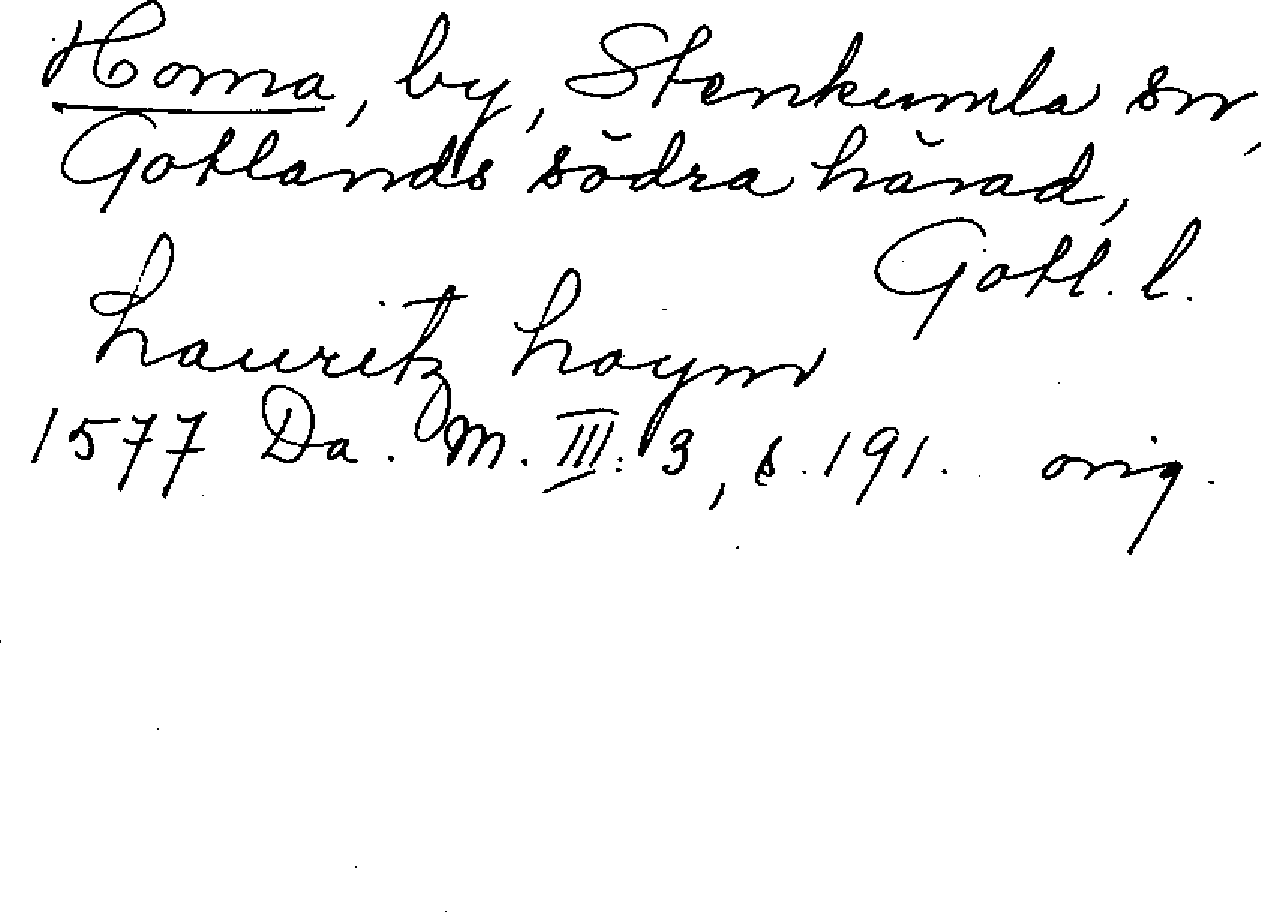 Homa, by, Stenkumla sn,
Gotlands södra härad,
Gotl. l.
Lauritz hoym
1577 Da. M. III: 3, s. 191. orig.